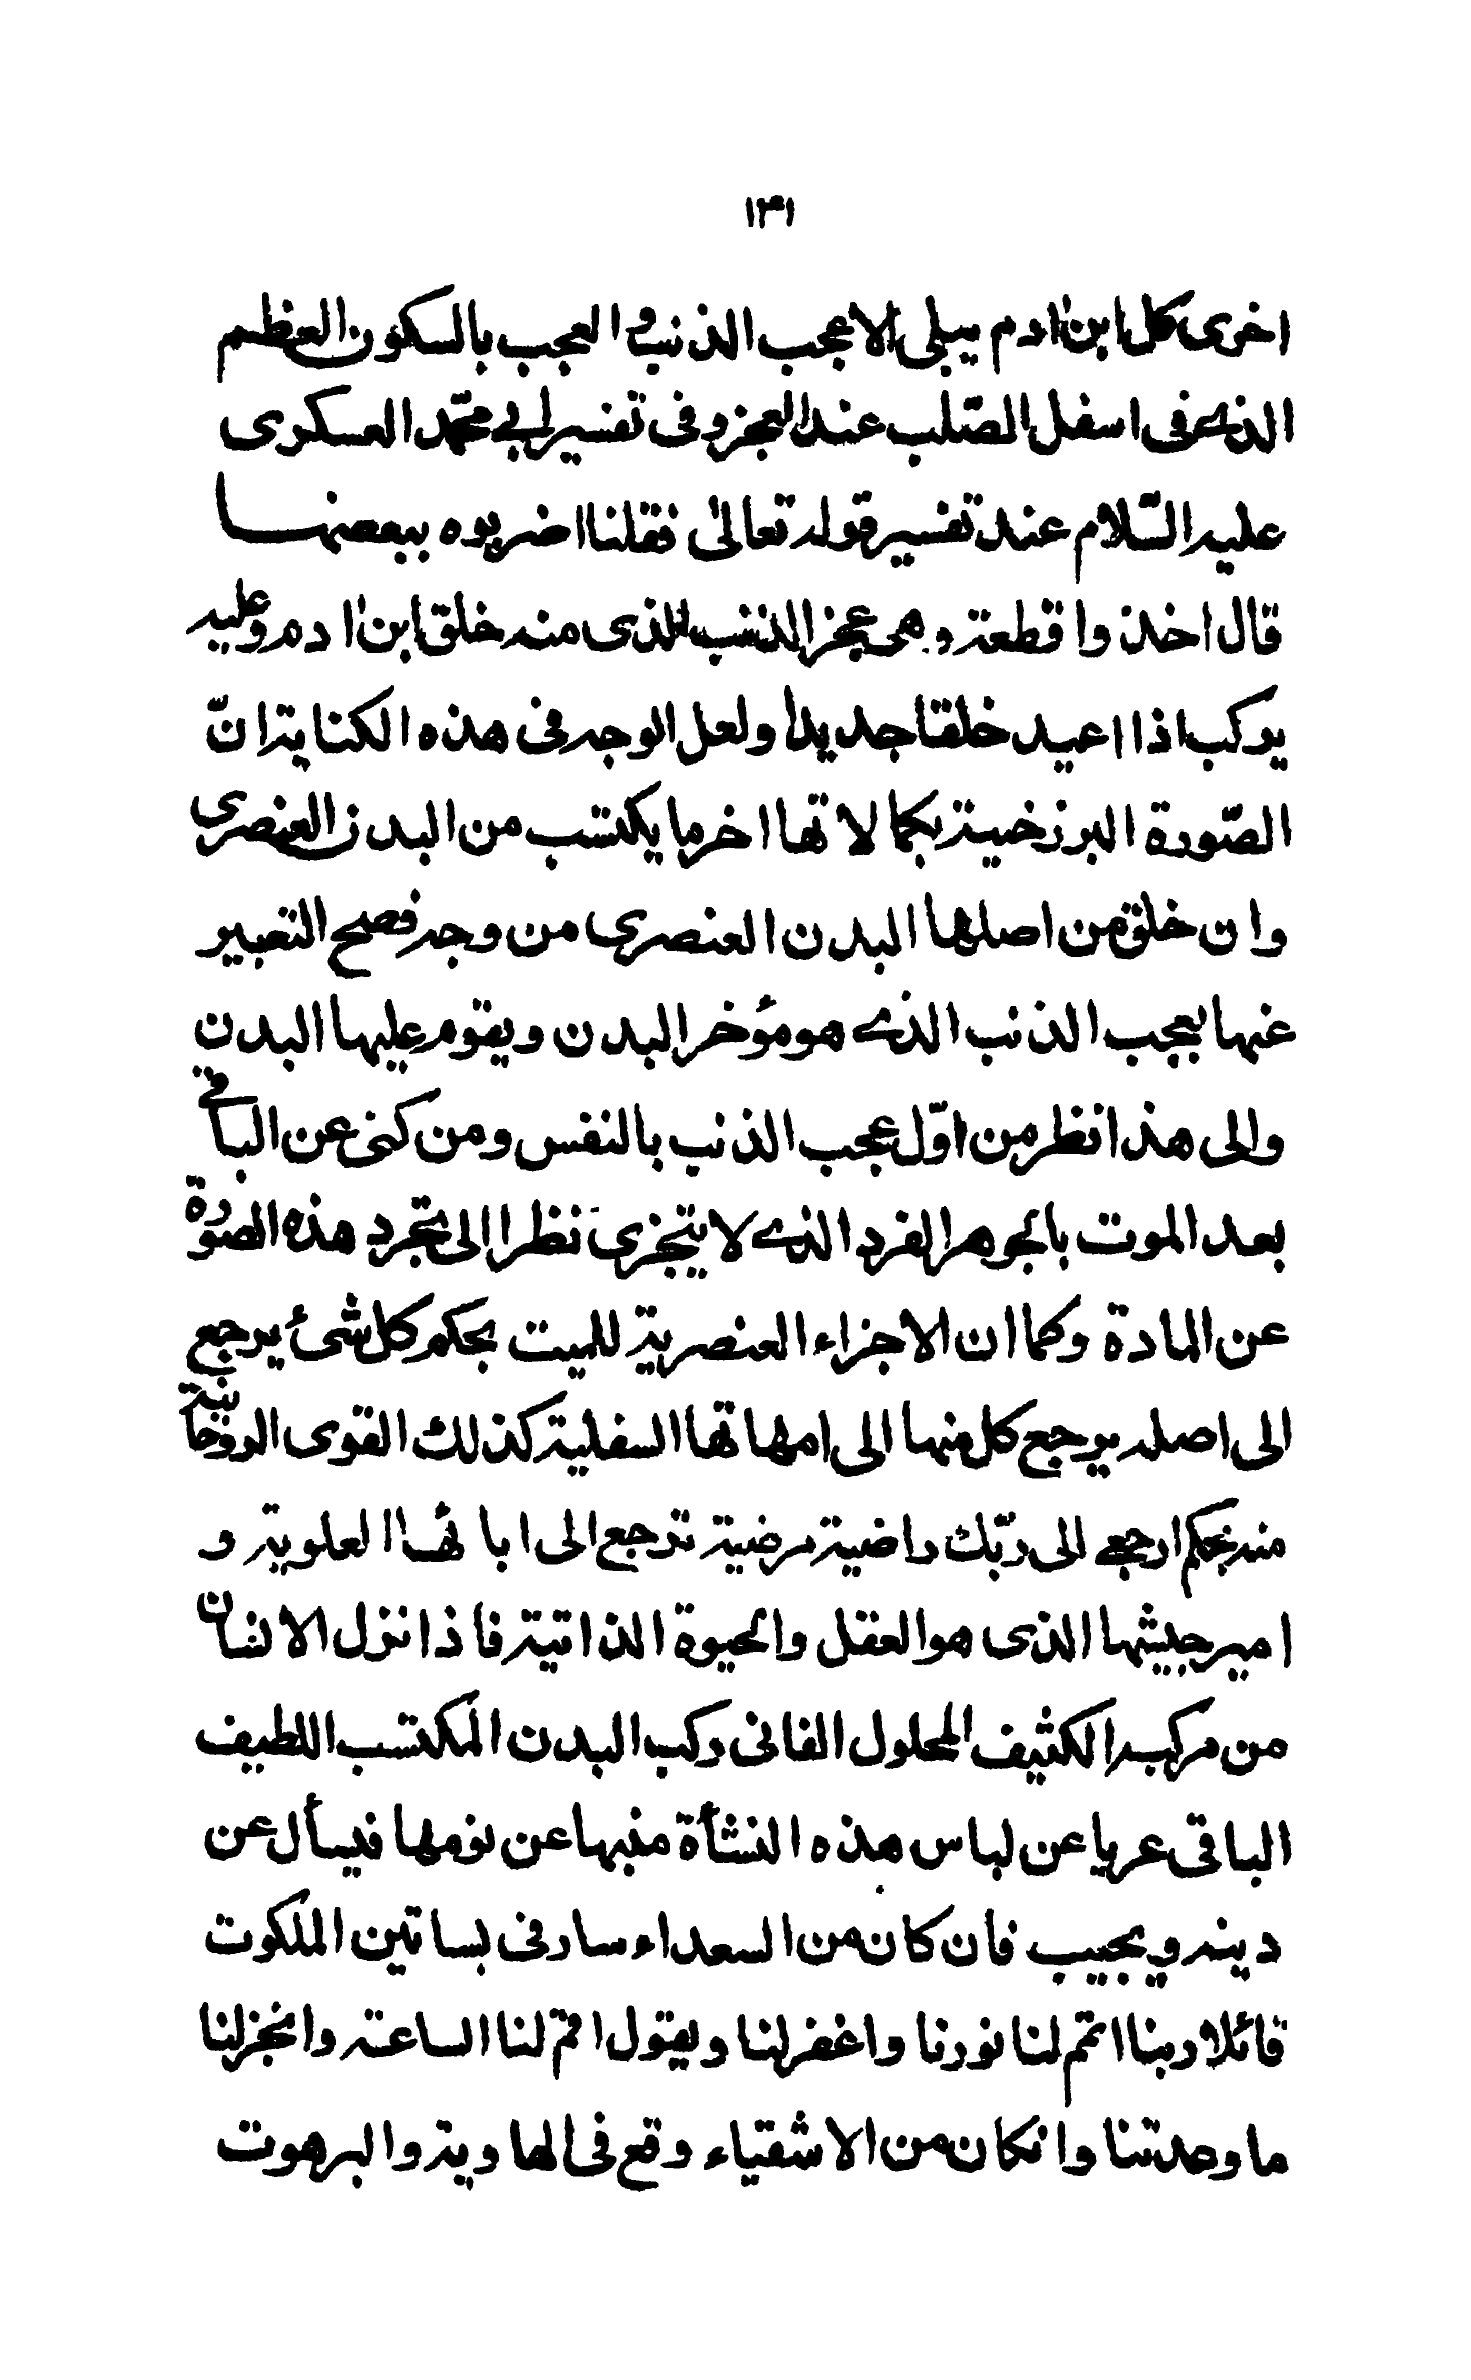 ١٣١
اخرى كل ابن ادم يبلى الا عجب الذنب و العجب بالسكون العظم
الذى فى اسفل الصّلب عند العجز و فى تفسير ابي محمّد العسكرى
عليه السّلام عند تفسير قوله تعالى فقلنا اضربوه ببعضها
قال اخذوا قطعة و هى عجز الذنب الذى منه خلق ابن ادم و عليه
يركب اذا اعيد خلقا جديدا ولعل الوجه فى هذه الكناية انّ
الصّورة البرزخية بكمالاتها اخر ما يكتسب من البدن العنصرى
وان خلق من اصلها البدن العنصرى من وجه فصح التعبير
عنها بعجب الذنب الذى هو مؤخر البدن و يقوم عليها البدن
والى هذا نظر من اوّل عجب الذنب بالنفس و من كنى عن الباقى
بعد الموت بالجوهر الفرد الذى لا يتجزى نظرا الى تجرد هذه الصورة
عن المادة وكما ان الاجزاء العنصرية للميت بحكم كل شئ يرجع
الى اصله يرجع كل منها الى امهاتها السفلية كذلك القوى الروحانية
منه بحكم ارجعى الى ربّك راضية مرضية ترجع الى ابائها العلوية و
امير جيشها الذى هو العقل والحيوة الذاتية فاذا نزل الانسان
من مركبه الكثيف المحلول الفانى ركب البدن المكتسب اللطيف
الباقى عريا عن لباس هذه النشأة منبها عن نومها فيسأل عن
دينه و يجيب فان كان من السعداء سار فى بساتين الملكوت
قائلا ربنا اتمم لنا نورنا واغفر لنا و يقول اقم لنا الساعة وانجز لنا
ما وعدتنا وانكان من الاشقياء وقع فى الهاوية والبرهوت